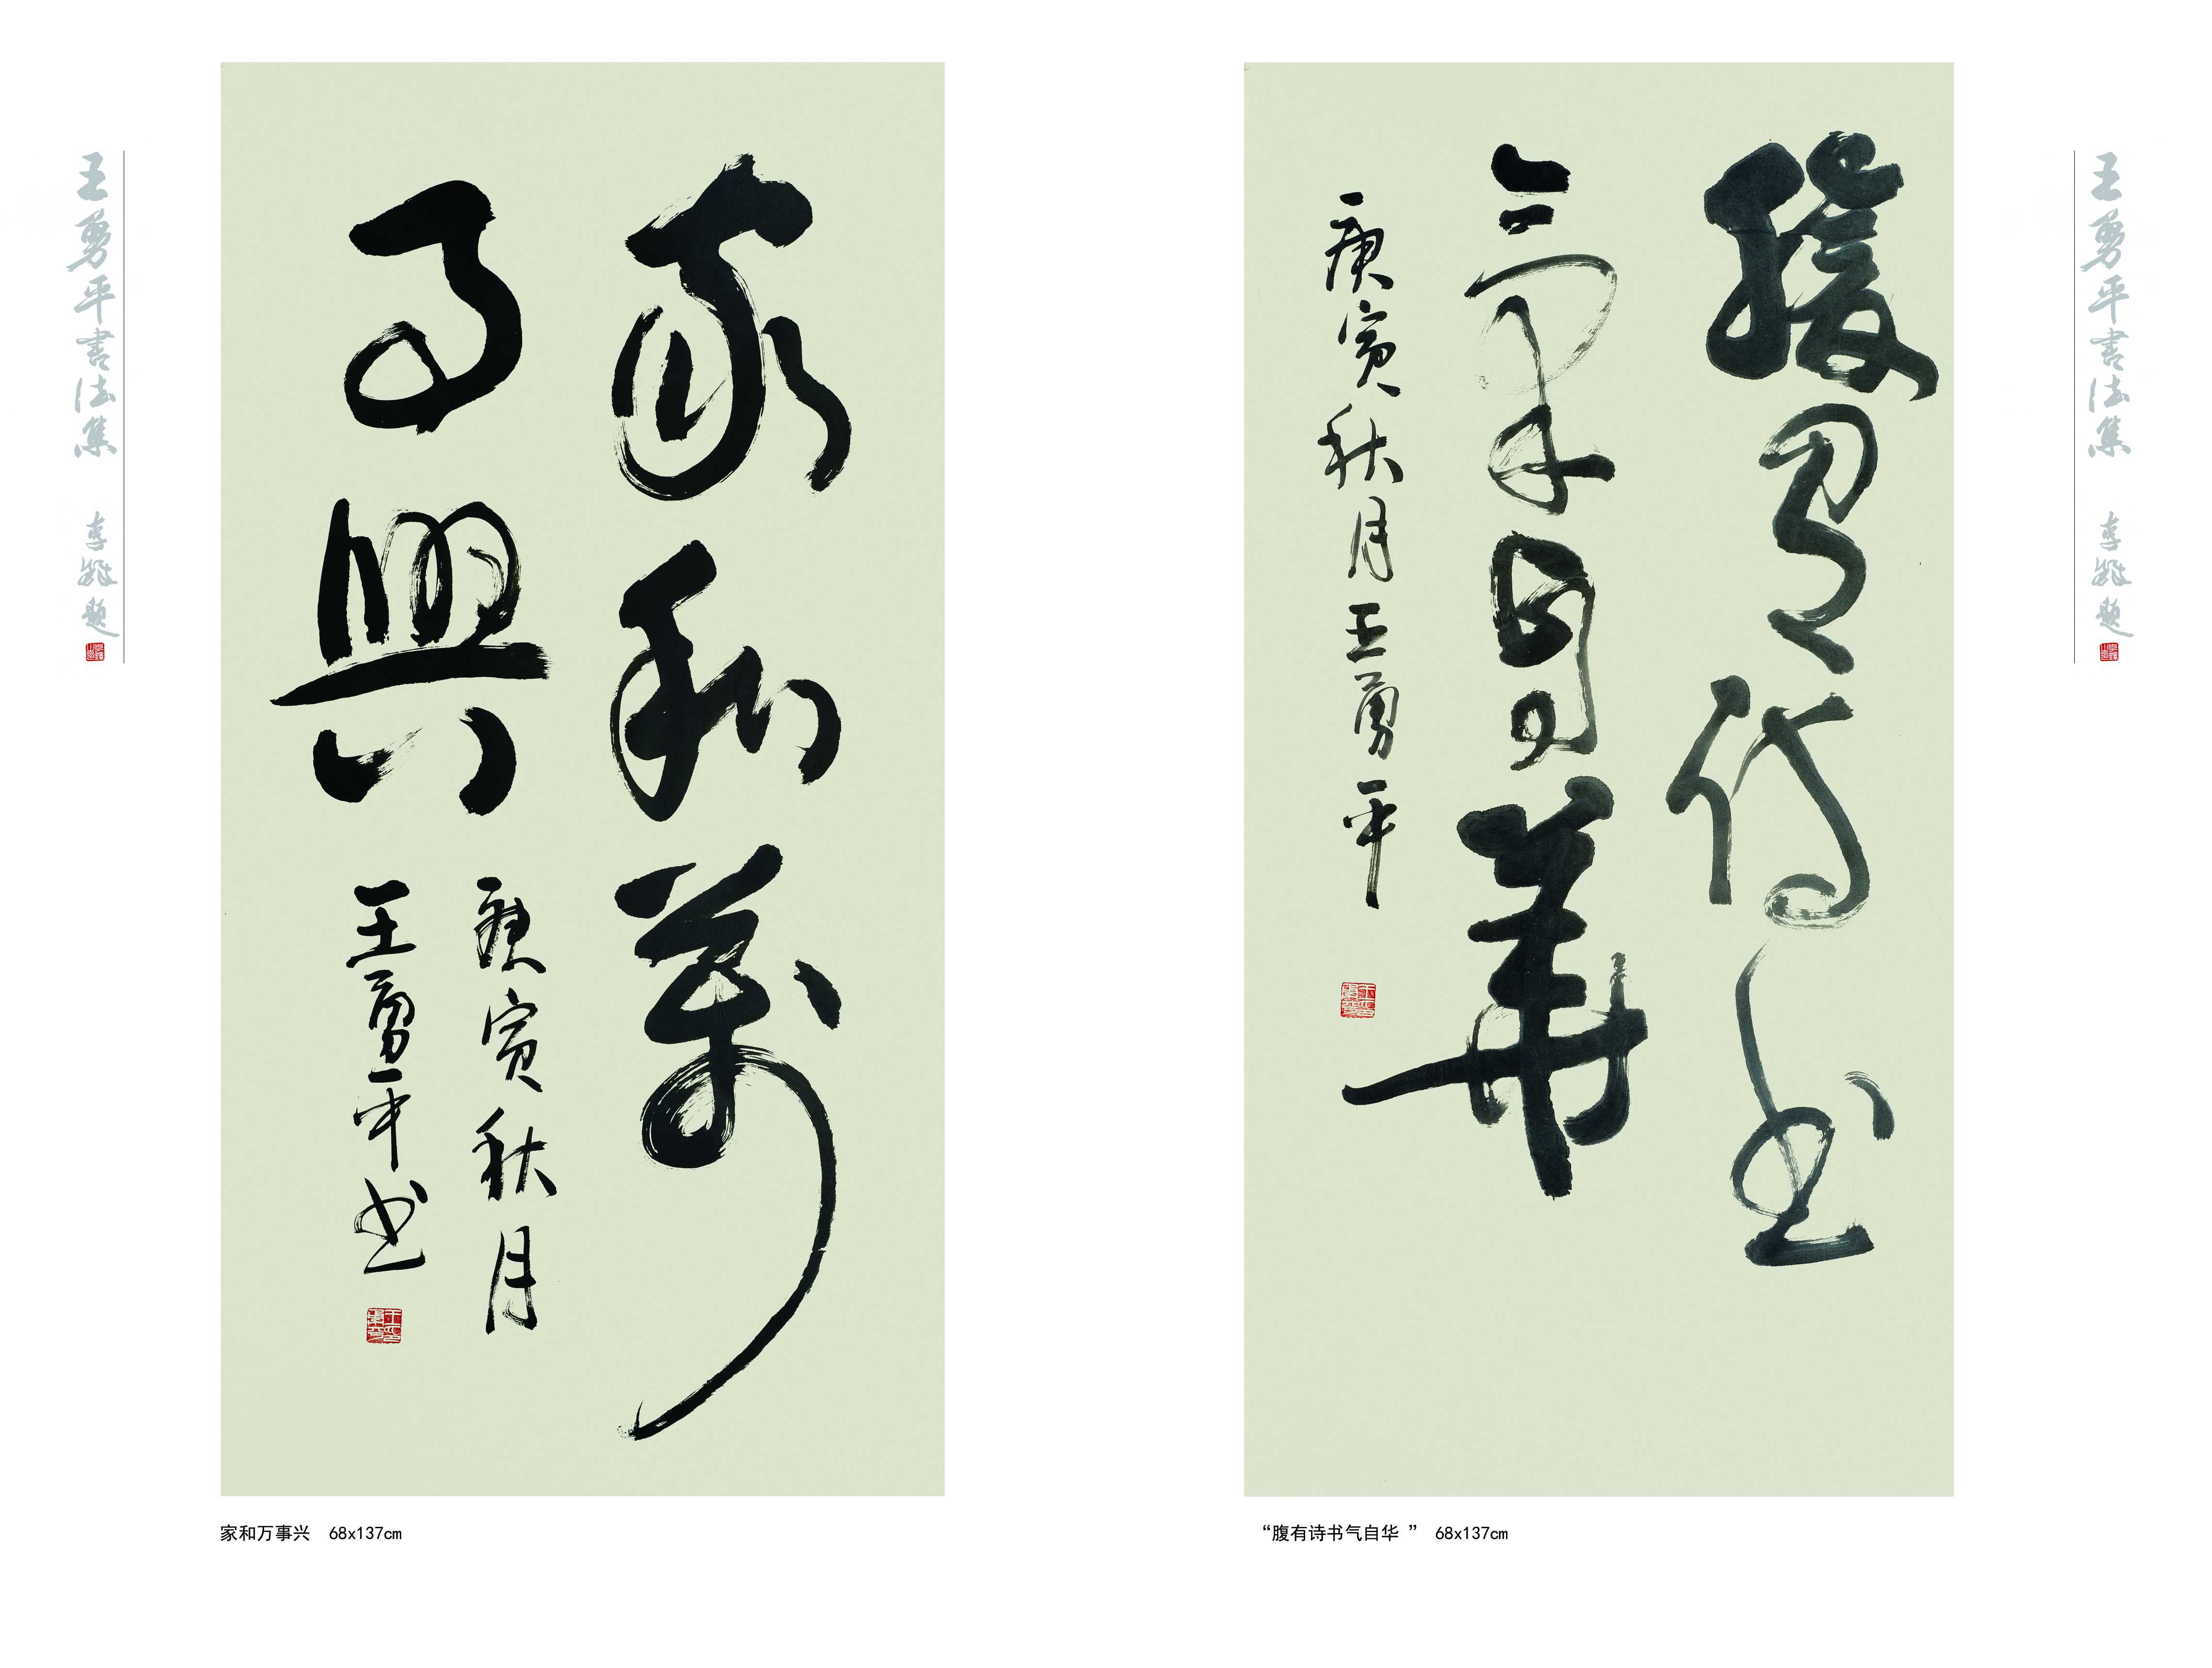 王勇平書法集
李鐸題
家和萬
事興
庚寅秋月
王勇平书
家和万事兴 68x137cm
腹有诗书
氣自華
庚寅秋月王勇平
“腹有诗书气自华 ” 68x137cm
王勇平書法集
李鐸題